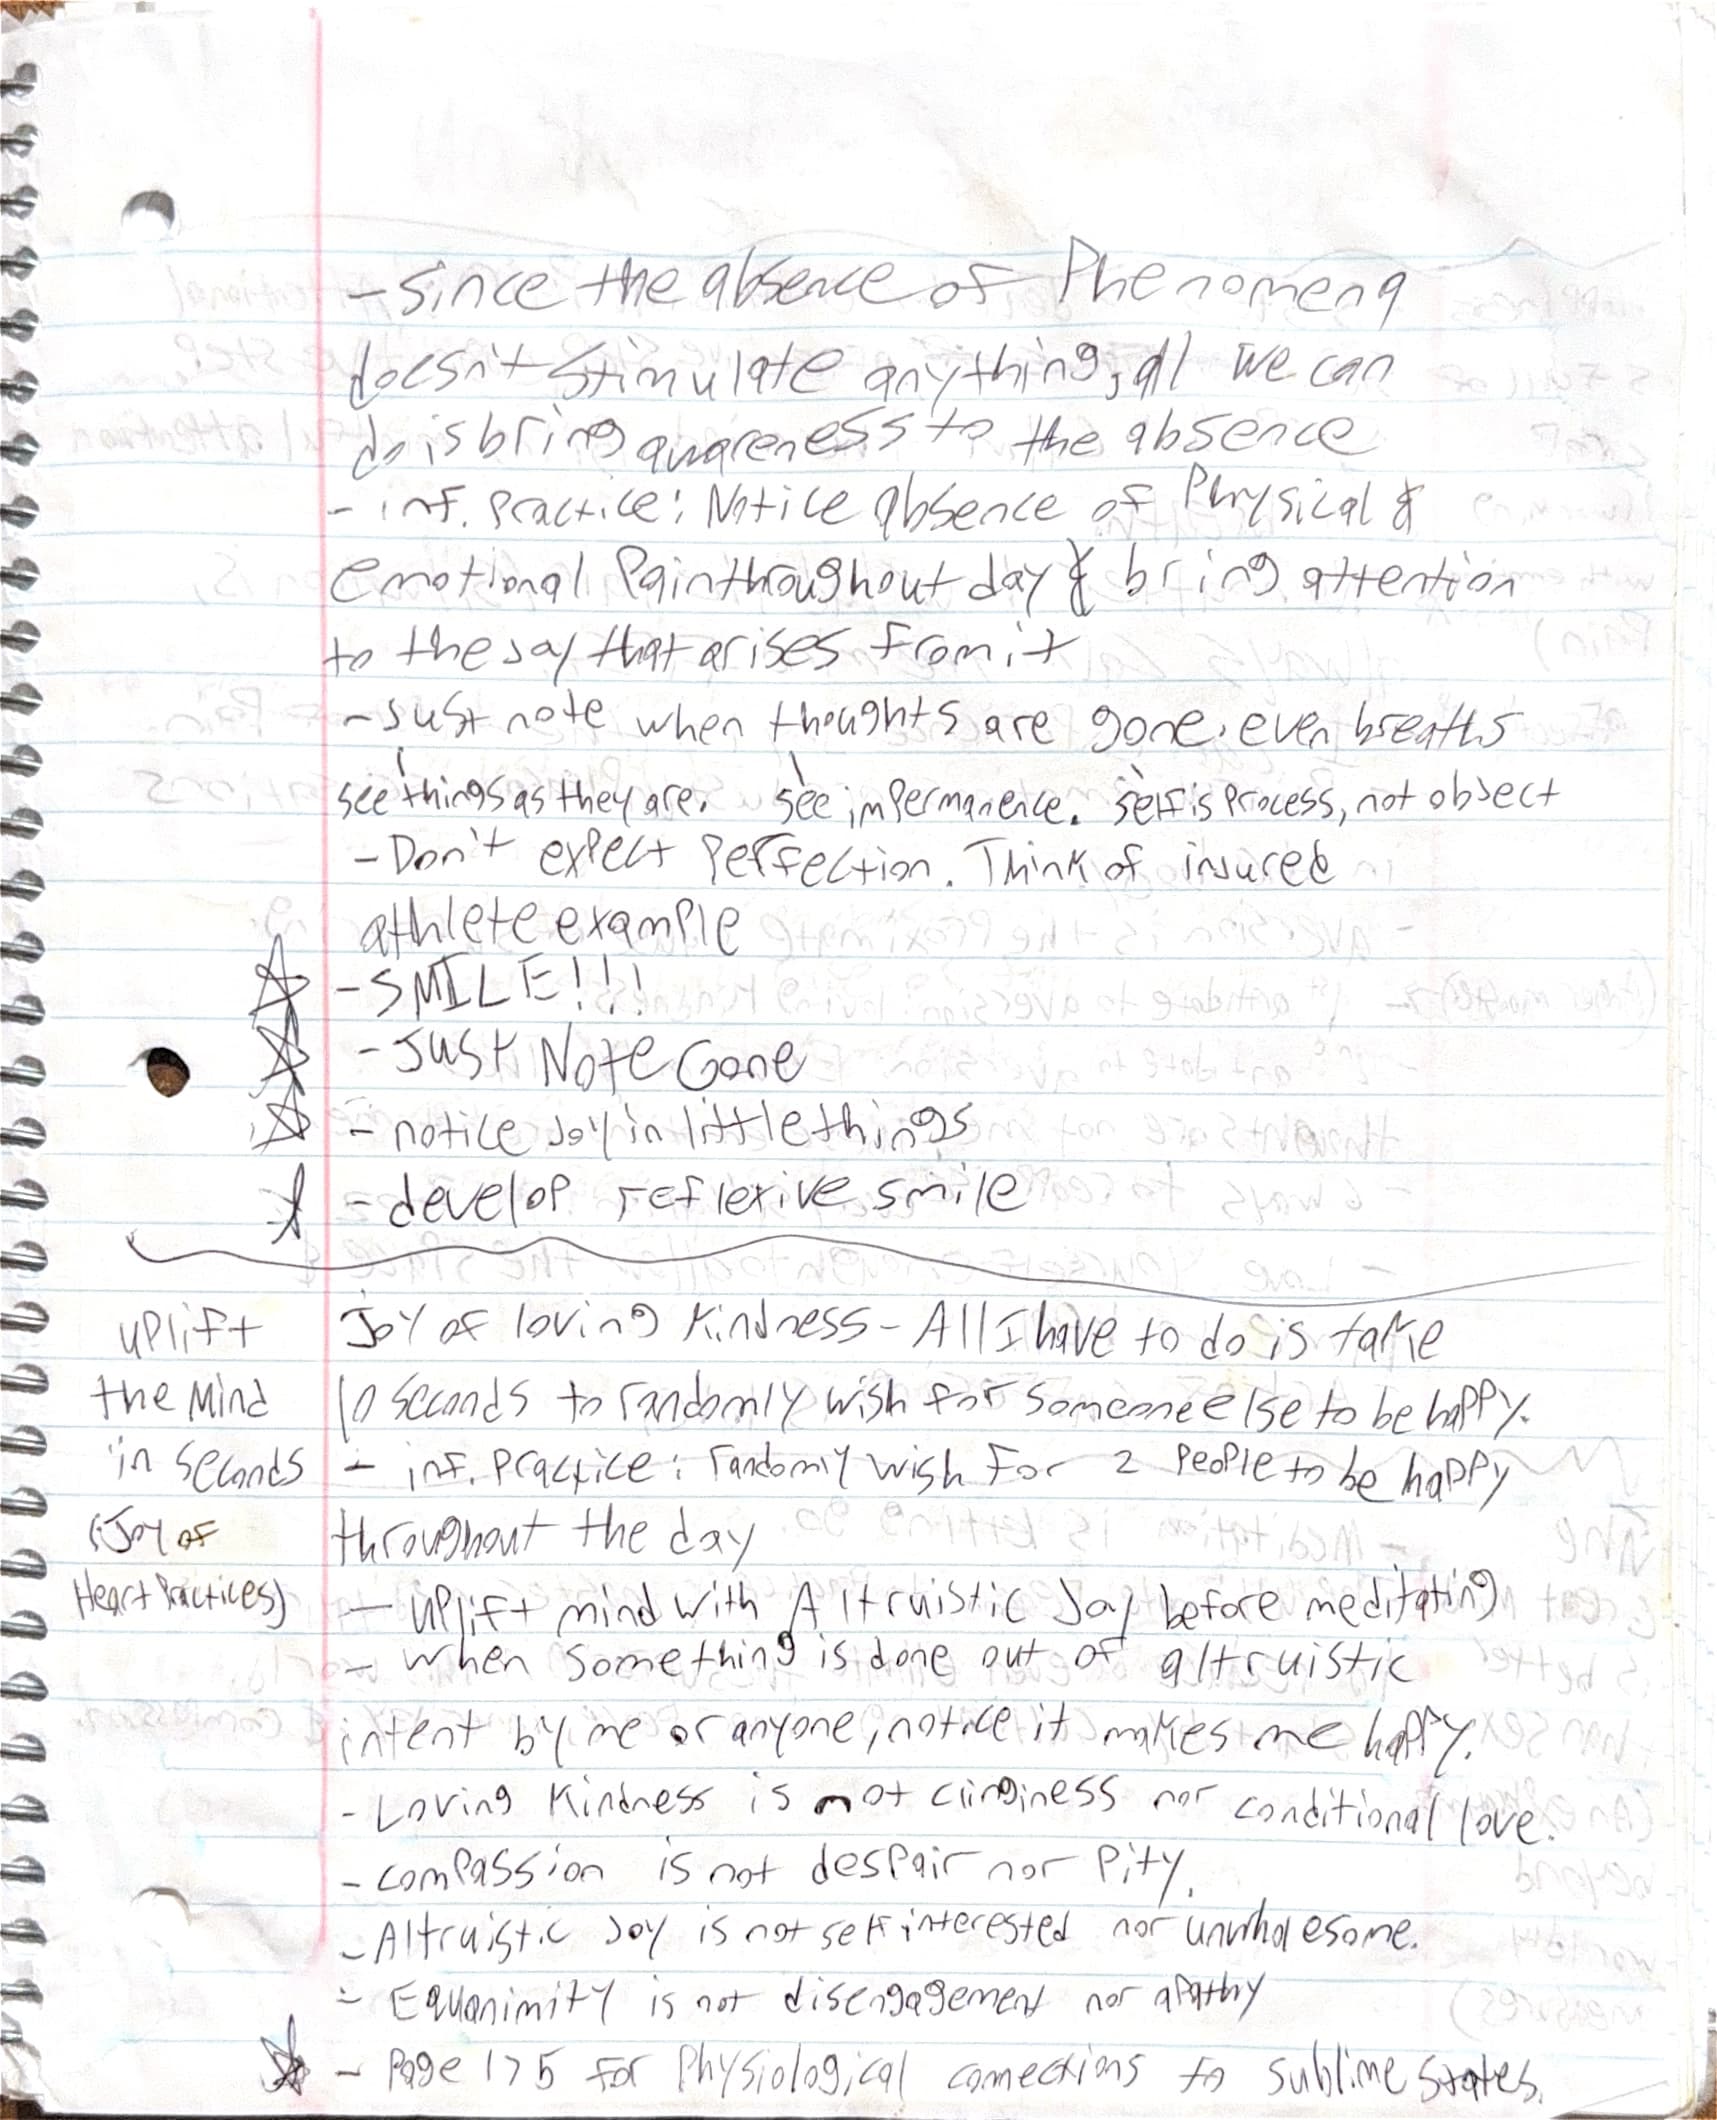 - Since the absence of Phenomena
doesn't stimulate anything, all we can
do is bring awareness to the absence
- inf. practice: Notice absence of Physical &
emotional Pain throughout day & bring attention
to the joy that arises from it
- Just note when thoughts are gone, even breaths
see things as they are. see impermanence. self is process, not object
- Don't expect perfection. Think of injured
athlete example
- SMILE!!!
- Just Note Gone
- notice joy in little things
- develop reflexive smile
uplift Joy of loving Kindness - All I have to do is take
the Mind 10 seconds to randomly wish for someone else to be happy.
in seconds - inf. practice: randomly wish for 2 people to be happy
(Joy of throughout the day
Heart Practices) - uplift mind with Altruistic Joy before meditating
- when something is done out of altruistic
intent by me or anyone, notice it makes me happy.
- Loving Kindness is not clinginess nor conditional love.
- compassion is not despair nor pity.
- Altruistic Joy is not self interested nor unwholesome.
- Equanimity is not disengagement nor apathy
- Page 175 for Physiological connections to sublime states.